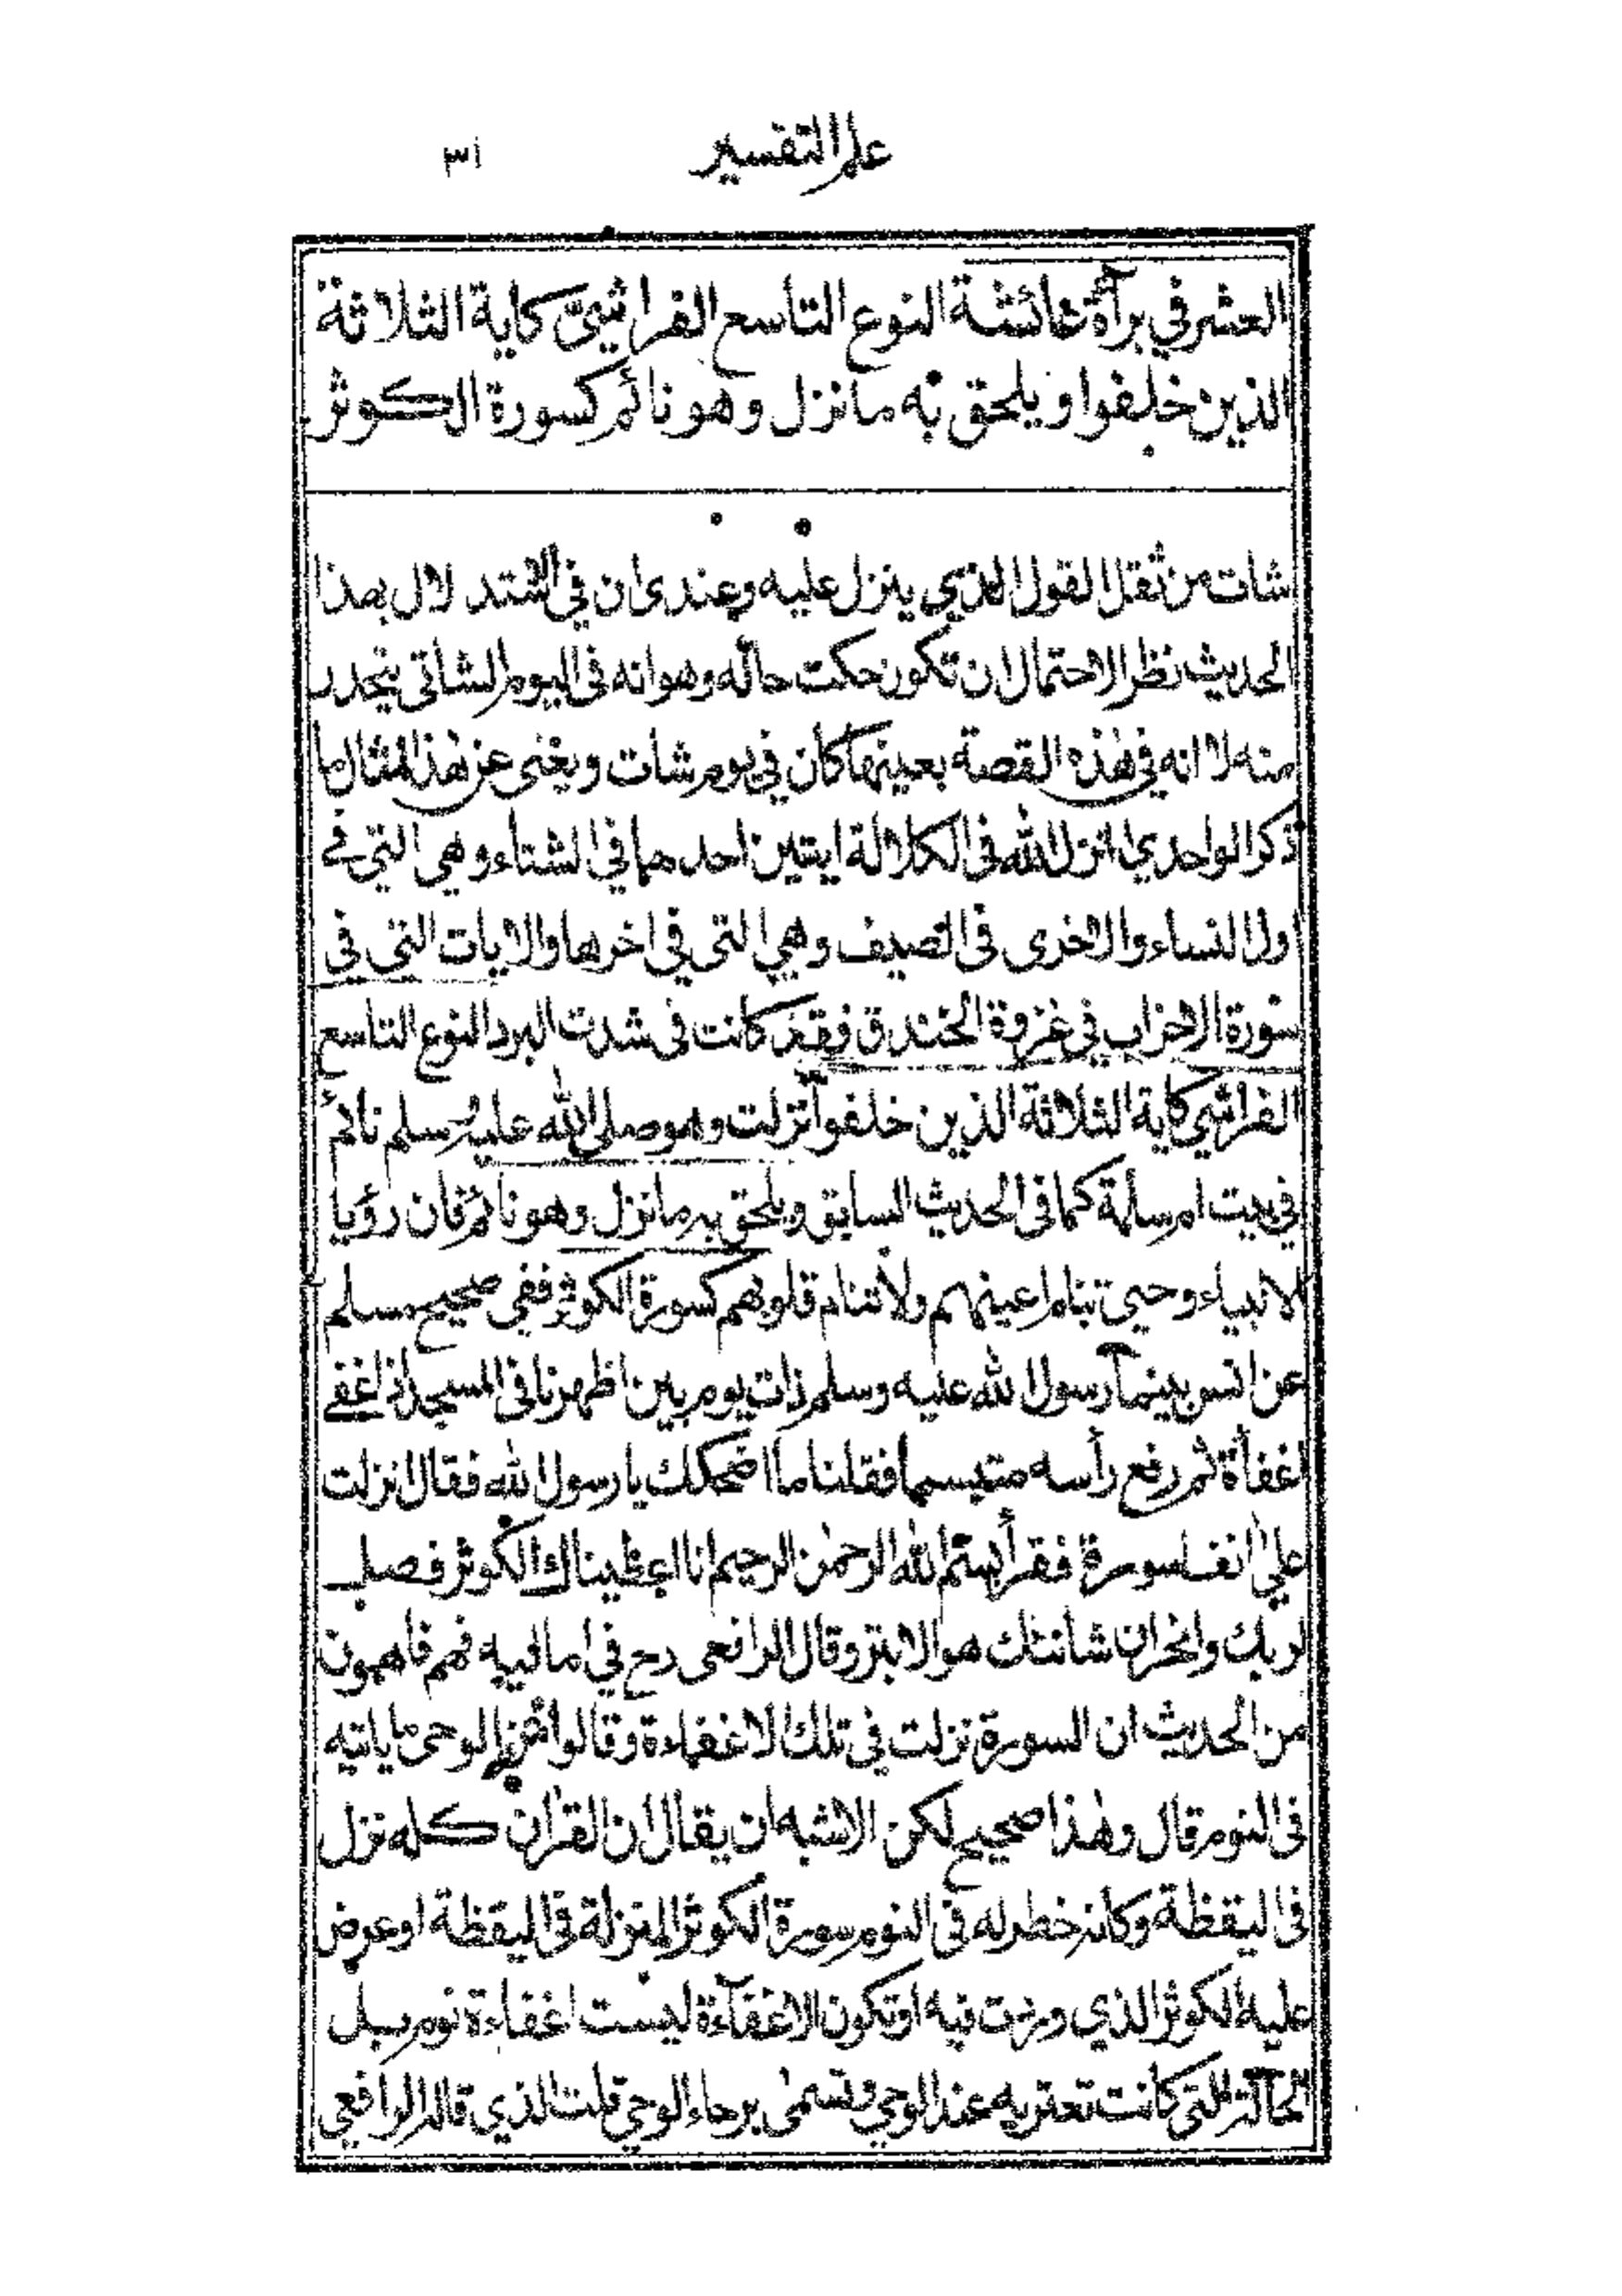 علم التفسير ٣١
العشر في برآءة عائشة النوع التاسع الفراشيّ كاية الثلاثة
الذين خلفوا ويلحق به ما نزل وهو نائم كسورة الكوثر
شات من ثقل القول الذي ينزل عليه وعندى ان في الاستدلال بهذا
الحديث نظر الاحتمال ان تكون حكت حاله وهو انه فى اليوم الشاتى يتحدر
منه لا انه في هذه القصة بعينها كان في يوم شات ويغنى عن هذا المثال ما
ذكر الواحدي انزل الله فى الكلالة ايتين احدهما في الشتاء وهي التي في
اول النساء والاخرى فى الصيف وهي التى في اخرها والايات التي في
سورة الاحزاب في غزوة الخندق فقد كانت فى شدت البرد النوع التاسع
الفراشي كاية الثلاثة الذين خلفوا نزلت وهو صلى الله عليه وسلم نائم
في بيت ام سلمة كما فى الحديث السابق ويلحق به ما نزل وهو نائم فان رؤيا
الانبياء وحي تنام اعينهم ولا تنام قلوبهم كسورة الكوثر ففي صحيح مسلم
عن انس بينما رسول الله عليه وسلم ذات يوم بين اظهرنا فى المسجد اذ اغفے
اغفأة ثم رفع رأسه متبسما فقلنا ما اضحكك يا رسول الله فقال انزلت
علي انفا سورة فقرأ بسم الله الرحمن الرحيم انا اعطيناك الكوثر فصل
لربك وانحر ان شانئك هو الابتر وقال الرافعى رح في اماليه فهم فاهمون
من الحديث ان السورة نزلت في تلك الاغفاءة وقالوا من الوحى ما ياتيه
فى النوم قال وهذا صحيح لكن الاشبه ان يقال ان القران كله نزل
فى اليقظة وكانه خطر له فى النوم سورة الكوثر المنزلة فى اليقظة او عرض
عليه الكوثر الذي وردت فيه او تكون الاغفآءة ليست اغفاءة نوم بل
الحالة التي كانت تعتريه عند الوحي وتسمى برحاء الوحي قلت الذي قاله الرافعي